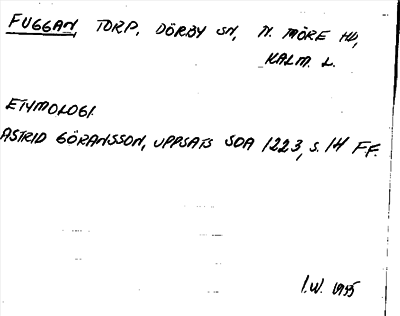 FUGGAN, TORP, DÖRBY SN, N. MÖRE HD,
KALM. L.
ETYMOLOGI.
ASTRID GÖRANSSON, UPPSATS SOA 1223, S. 14 FF.
I.W. 1955